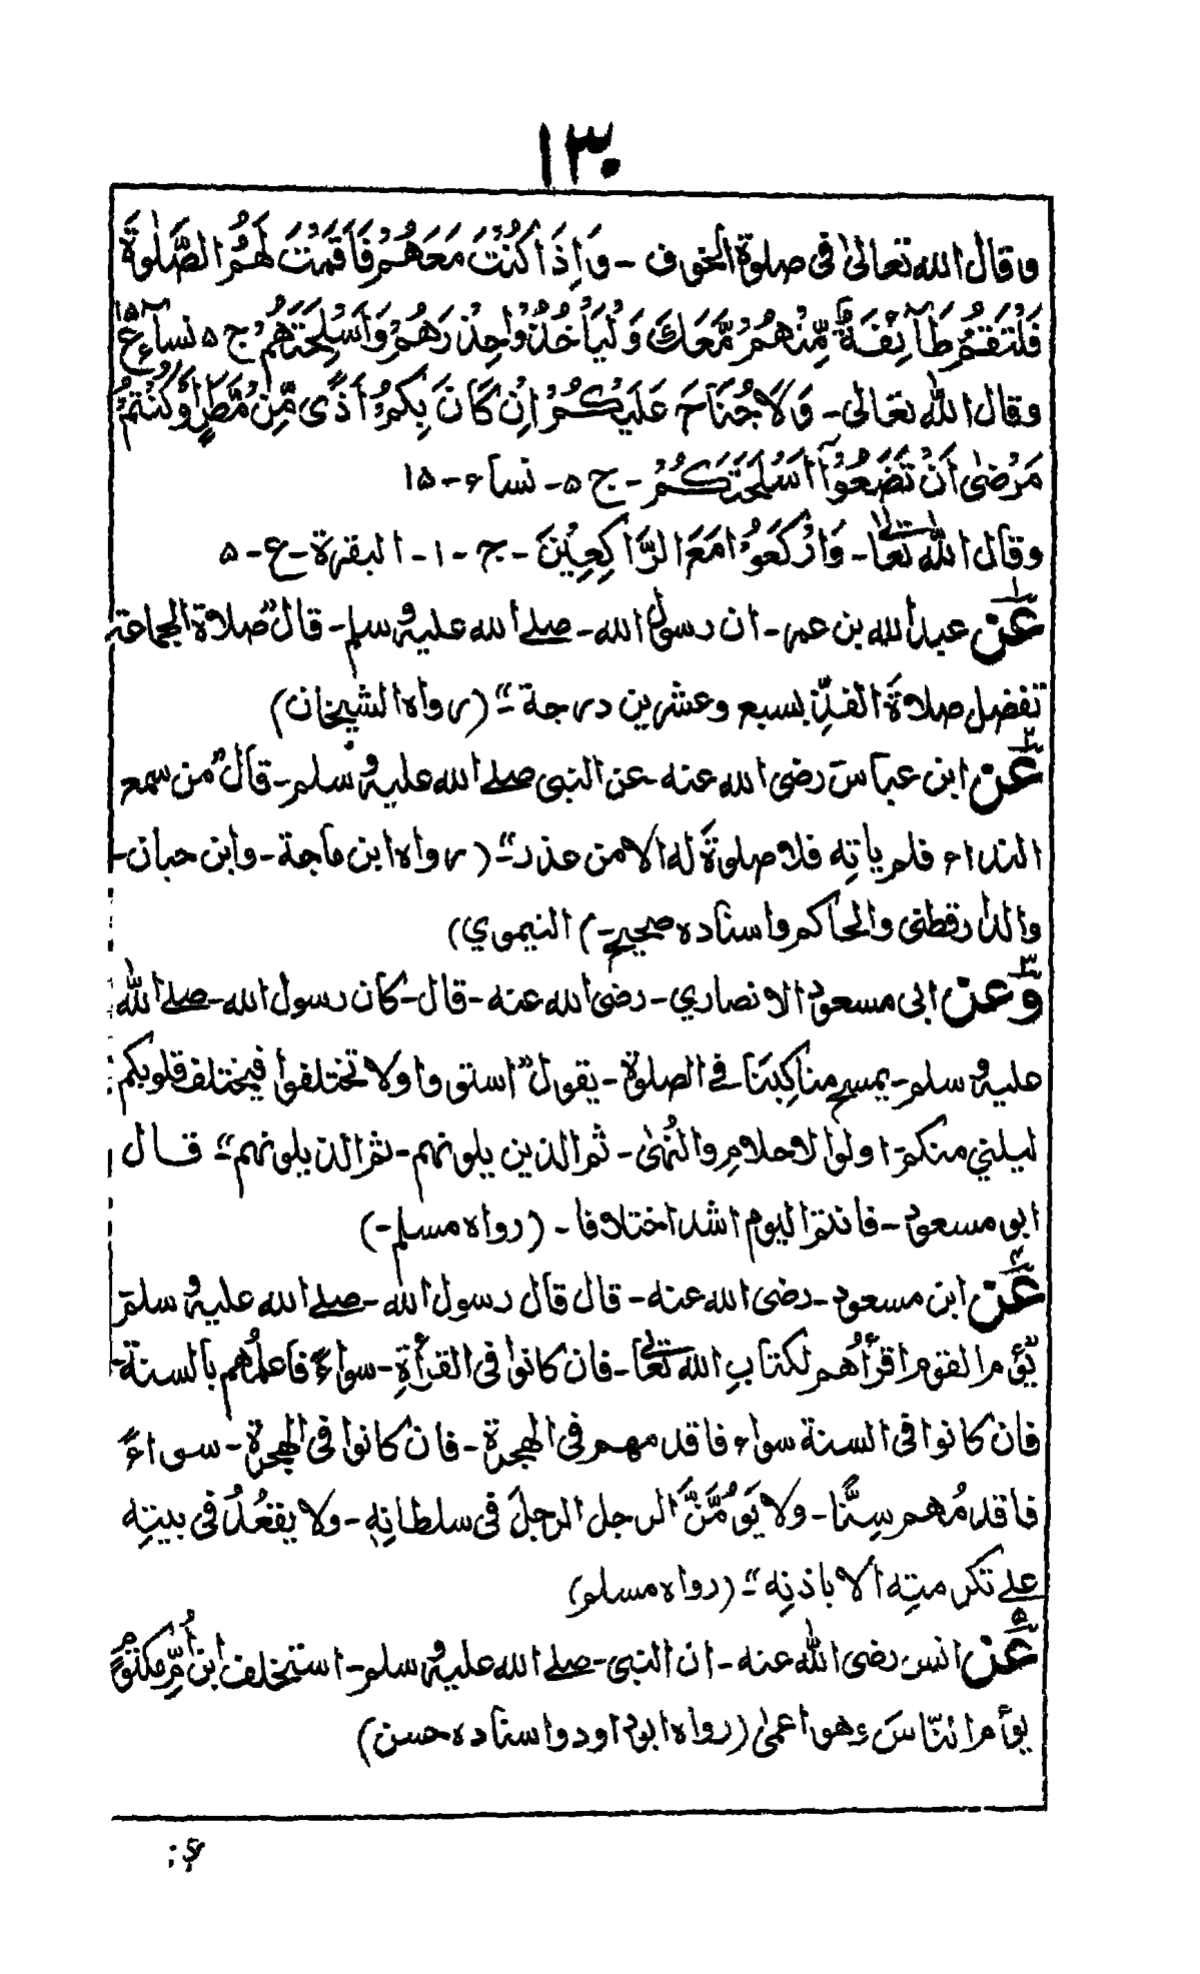 ١٣٠
وقال الله تعالىٰ فى صلوة الخوف - وَاِذَا كُنْتَ مَعَهُمْ فَاَقَمْتَ لَهُمُ الصَّلٰوةَ
فَلْتَقُمْ طَآئِفَةٌ مِّنْهُمْ مَّعَكَ وَلْيَأْخُذُوْا حِذْرَهُمْ وَاَسْلِحَتَهُمْ ج ۵ نساء ع ۱۵
وقال الله تعالىٰ - وَلَا جُنَاحَ عَلَيْكُمْ اِنْ كَانَ بِكُمْ اَذًى مِّنْ مَّطَرٍ اَوْ كُنْتُمْ
مَرْضٰى اَنْ تَضَعُوْٓا اَسْلِحَتَكُمْ - ج ۵ - نساء - ۱۵
وقال الله تعالىٰ - وَارْكَعُوْا مَعَ الرَّاكِعِيْنَ - ج - ۱ - البقرة - ع - ۵
۱ عَن عبد الله بن عمر - ان رسول الله - صلے الله عليه وسلم - قال "صلاة الجماعة
تفضل صلاةَ الفذِّ بسبع وعشرين درجة" - (رواه الشيخان)
۲ عَن ابن عباس رضى الله عنه - عن النبى صلے الله عليه وسلم - قال "من سمع
النداء فلم ياتِه فلا صلوةَ له الا من عذر" - (رواه ابن ماجة - وابن حبان -
والدارقطنى والحاكم واسناده صحيح -) النيموي)
۳ وَعن ابى مسعود الانصاري - رضى الله عنه - قال - كان رسول الله - صلے الله
عليه وسلم - يمسح مناكبَنا فے الصلوة - يقول "استووا ولا تختلفوا فيختلف قلوبكم
ليلني منكم اولوا الاحلامِ والنُهىٰ - ثم الذين يلونهم - ثم الذين يلونهم" - قال
ابو مسعود - فانتم اليوم اشد اختلافا - (رواه مسلم -)
۴ عَن ابن مسعود - رضى الله عنه - قال قال رسول الله - صلے الله عليه وسلم
يؤم القوم اقرأُهم لكتابِ الله تعالىٰ - فان كانوا فى القرأةِ - سواءً فاعلمُهم بالسنة -
فان كانوا فى السنة سواء فاقدمهم فى الهجرة - فان كانوا فى الهجرة - سواءً
فاقدمُهم سِنًّا - ولا يَؤُمَّنَّ الرجل الرجلَ فى سلطانِه - ولا يقعُدُ فى بيتِه
علے تكرمتِه الا باذنِه" - (رواه مسلم)
۵ عَن انس رضى الله عنه - ان النبى - صلے الله عليه وسلم - استخلف ابن اُمِّ مكتوم
يؤم الناسَ وهو اعمىٰ (رواه ابو داود واسناده حسن)